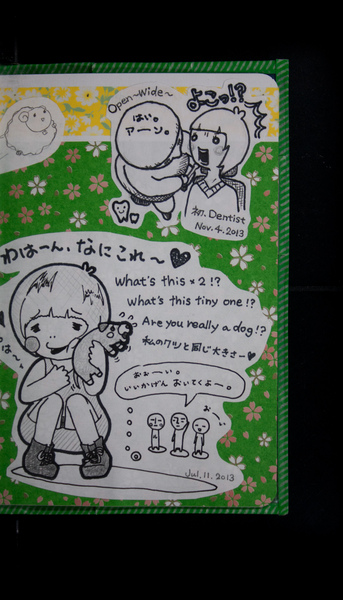 Open~Wide~
よこっ!?
はい。
アーン。
初. Dentist
Nov. 4. 2013
わは~ん. なにこれ~♥
What's this ×2!?
What's this tiny one!?
Are you really a dog!?
私のクツと同じ大きさー♥
おぉーい。
いいかげん おいてくよー。
お~い
Jul. 11. 2013